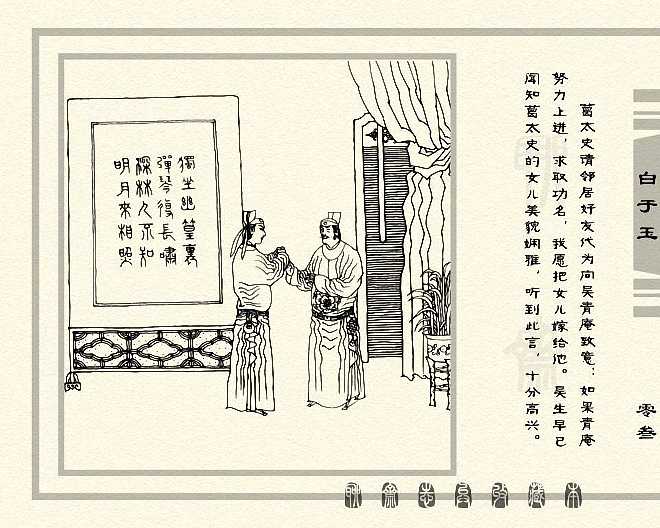 獨坐幽篁裏
彈琴復長嘯
深林人不知
明月來相照
葛太史请邻居好友代为向吴青庵致意：如果青庵
努力上进，求取功名，我愿把女儿嫁给他。吴生早已
闻知葛太史的女儿美貌娴雅，听到此言，十分高兴。
白于玉
零叁
聊斋志异收藏本